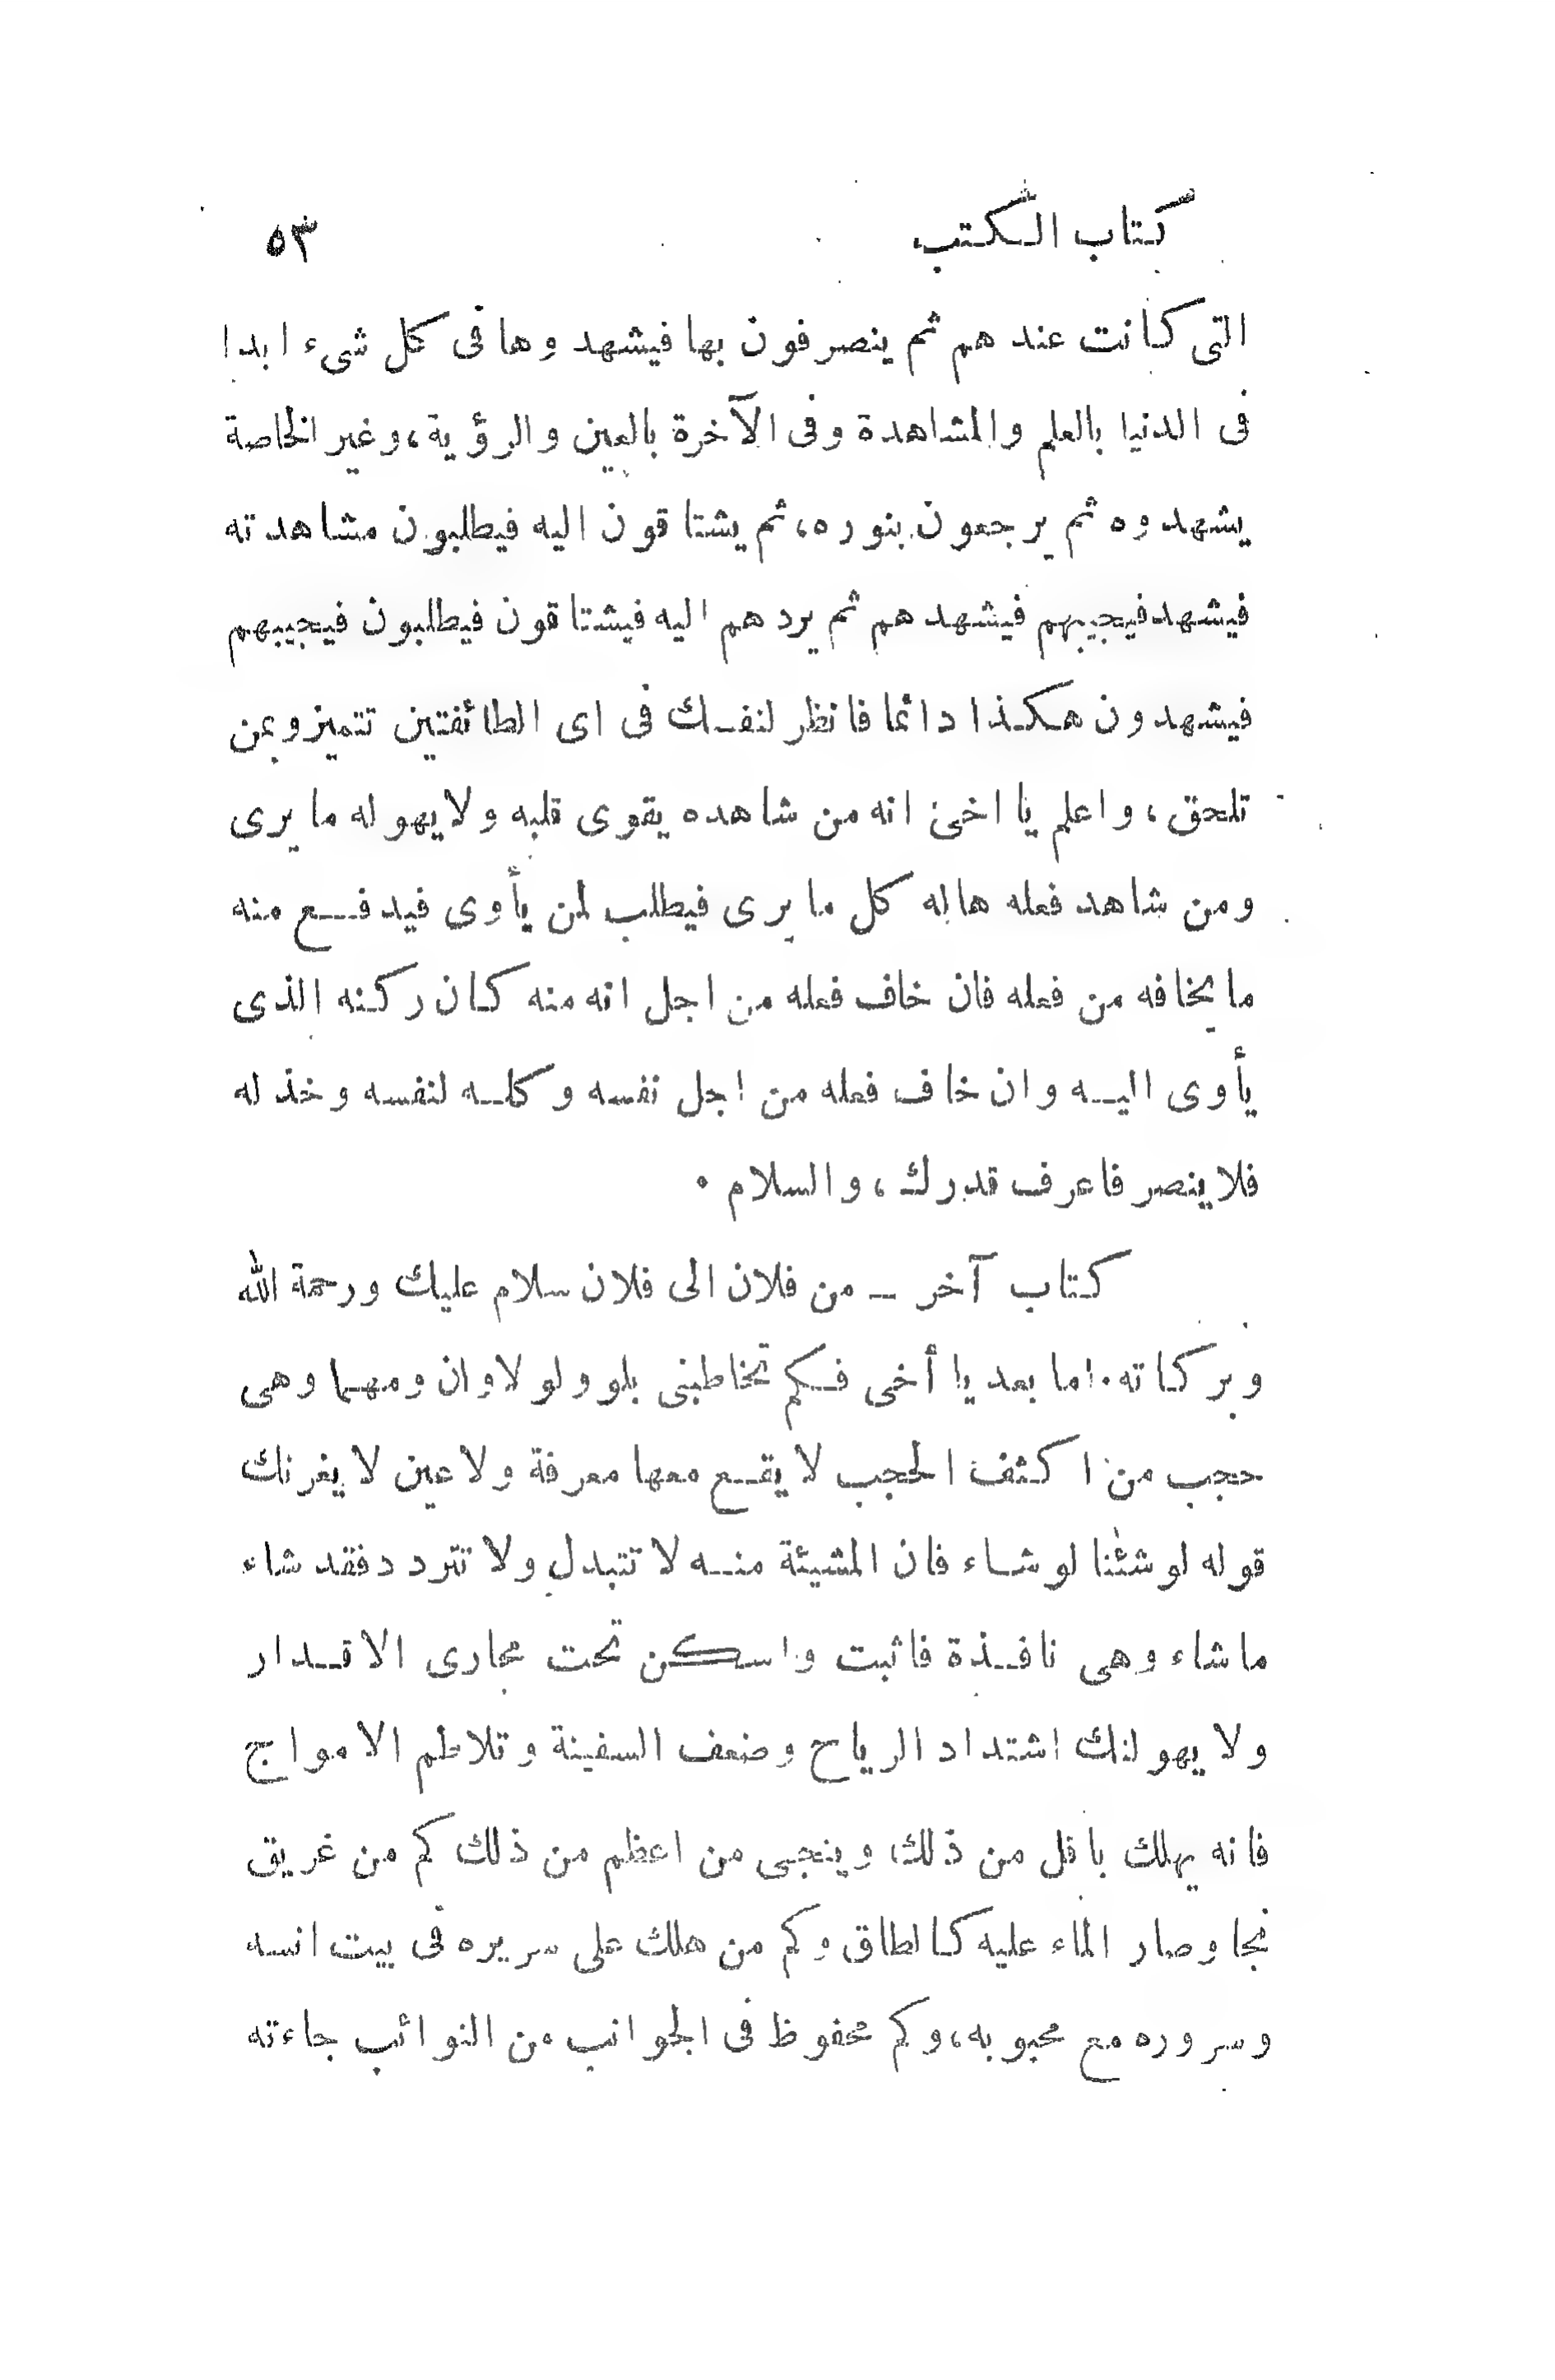 كتاب الكتب ٥٣
التى كانت عندهم ثم ينصرفون بها فيشهدوها فى كل شىء ابدا
فى الدنيا بالعلم والمشاهدة وفى الآخرة بالعين والرؤية، وغير الخاصة
يشهدوه ثم يرجعون بنوره، ثم يشتاقون اليه فيطلبون مشاهدته
فيشهد فيجيبهم فيشهدهم ثم يردهم اليه فيشتاقون فيطلبون فيجيبهم
فيشهدون هكذا دائما فانظر لنفسك فى اى الطائفتين تتميز وبمن
تلحق، واعلم يا اخى انه من شاهده يقوى قلبه ولا يهوله ما يرى
ومن شاهد فعله هاله كل ما يرى فيطلب لمن يأوى فيدفع منه
ما يخافه من فعله فان خاف فعله من اجل انه منه كان ركنه الذى
يأوى اليه وان خاف فعله من اجل نفسه وكله لنفسه وخذله
فلا ينصر فاعرف قدرك، والسلام ٠
كتاب آخر ــ من فلان الى فلان سلام عليك ورحمة الله
وبركاته٠ اما بعد يا أخى فكم تخاطبنى بلو ولو لا وان ومهما وهى
حجب من اكثف الحجب لا يقع معها معرفة ولا عين لا يغرنك
قوله لو شئنا لو شاء فان المشيئة منه لا تتبدل ولا تتردد فقد شاء
ما شاء وهى نافذة فاثبت واسكن تحت مجارى الاقدار
ولا يهولنك اشتداد الرياح وضعف السفينة وتلاطم الامواج
فانه يهلك باقل من ذلك وينجى من اعظم من ذلك كم من غريق
نجا وصار الماء عليه كالطاق وكم من هلك على سريره فى بيت انسه
وسروره مع محبوبه، وكم محفوظ فى الجوانب من النوائب جاءته